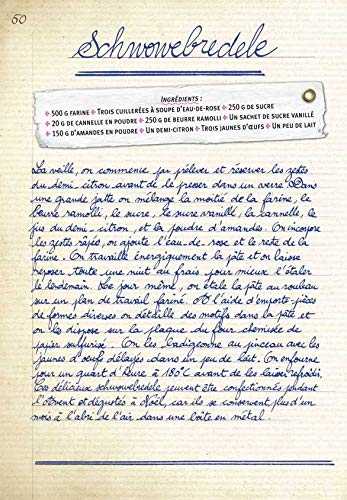 60
Schwowebredele
INGRÉDIENTS :
+ 500 G FARINE + TROIS CUILLERÉES À SOUPE D'EAU-DE-ROSE + 250 G DE SUCRE
+ 20 G DE CANNELLE EN POUDRE + 250 G DE BEURRE RAMOLLI + UN SACHET DE SUCRE VANILLÉ
+ 150 G D'AMANDES EN POUDRE + UN DEMI-CITRON + TROIS JAUNES D'ŒUFS + UN PEU DE LAIT
La veille, on commence par prélever et réserver les zestes
du demi-citron avant de le presser dans un verre. Dans
une grande jatte on mélange la moitié de la farine, le
beurre ramolli, le sucre, le sucre vanillé, la cannelle, le
jus du demi-citron, et la poudre d'amandes. On incorpore
les zestes râpés, on ajoute l'eau-de-rose et le reste de la
farine. On travaille énergiquement la pâte et on laisse
reposer toute une nuit au frais pour mieux l'étaler
le lendemain. Le jour même, on étale la pâte au rouleau
sur un plan de travail fariné. A l'aide d'emporte-pièces
de formes diverses on détaille des motifs dans la pâte et
on les dispose sur la plaque du four chemisée de
papier sulfurisé. On les badigeonne au pinceau avec les
jaunes d'œufs délayés dans un peu de lait. On enfourne
pour un quart d'heure à 180°C avant de les laisser refroidir.
Ces délicieux schwowebredele peuvent être confectionnés pendant
l'Avent et dégustés à Noël, car ils se conservent plus d'un
mois à l'abri de l'air dans une boîte en métal.